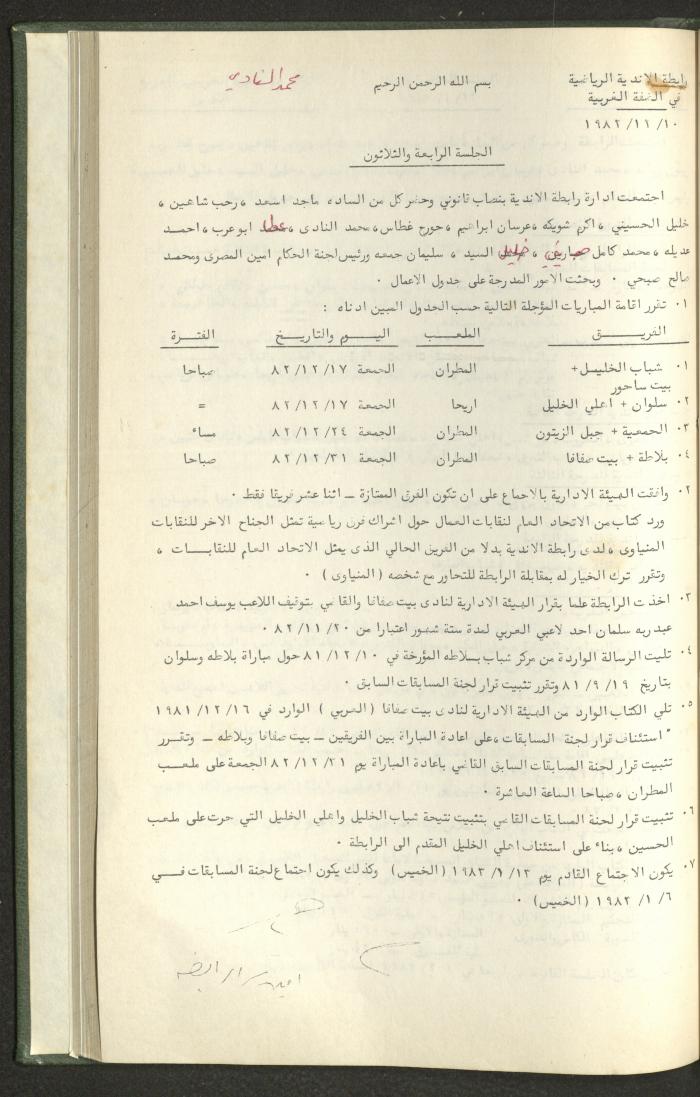 رابطة الاندية الرياضية
في الضفة الغربية
بسم الله الرحمن الرحيم
محمد النادي
١٩٨٢/١٢/١٠
الجلسة الرابعة والثلاثون
اجتمعت ادارة رابطة الاندية بنصاب قانوني وحضر كل من الساده ماجد اسعد ، رحب شاهين ،
خليل الحسيني ، اكرم شويكه ، عرسان ابراهيم ، جورج غطاس ، محمد النادى ، عطا ابوعرب ، احمد
عديله ، محمد كامل صبارين ، خليل السيد ، سليمان جمعه ورئيس لجنة الحكام امين المصرى ومحمد
صالح صبحي ٠ وبحثت الامور المدرجة على جدول الاعمال ٠
٠١ تقرر اقامة المباريات المؤجلة التالية حسب الجدول المبين ادناه :
الفريــــق الملعــب اليــوم والتاريــخ الفتـرة
٠١ شباب الخليـل + المطران الجمعة ٨٢/١٢/١٧ صباحا
بيت ساحور
٠٢ سلوان + اهلي الخليل اريحا الجمعة ٨٢/١٢/١٧ =
٠٣ الجمعية + جبل الزيتون المطران الجمعة ٨٢/١٢/٢٤ مساء
٠٤ بلاطة + بيت صفافا المطران الجمعة ٨٢/١٢/٣١ صباحا
٠٢ وافقت الهيئة الادارية بالاجماع على ان تكون الفرق الممتازة ــ اثنا عشر فريقا فقط ٠
ورد كتاب من الاتحاد العام لنقابات العمال حول اشراك فرق رياضية تمثل الجناح الاخر للنقابات
المنياوى ، لدى رابطة الاندية بدلا من الفريق الحالي الذى يمثل الاتحاد العام للنقابــات ،
وتقرر ترك الخيار له بمقابلة الرابطة للتحاور مع شخصه ( المنياوى ) ٠
٠٣ اخذت الرابطة علما بقرار الهيئة الادارية لنادى بيت صفافا والقاضي بتوقيف اللاعب يوسف احمد
عبد ربه سلمان احد لاعبي العربي لمدة ستة شهور اعتبارا من ٨٢/١١/٢٠ ٠
٠٤ تليت الرسالة الواردة من مركز شباب بــلاطه المؤرخة في ٨١/١٢/١٠ حول مباراة بلاطه وسلوان
بتاريخ ٨١/٩/١٩ وتقرر تثبيت قرار لجنة المسابقات السابق ٠
٠٥ تلي الكتاب الوارد من الهيئة الادارية لنادى بيت صفافا ( العربي ) الوارد في ١٩٨١/١٢/١٦
" استئناف قرار لجنة المسابقات ، على اعادة المباراة بين الفريقين ــ بيت صفافا وبلاطه ــ وتقــرر
تثبيت قرار لجنة المسابقات السابق القاضي باعادة المباراة يوم ٨٢/١٢/٣١ الجمعة على ملعــب
المطران ، صباحا الساعة العاشرة ٠
٠٦ تثبيت قرار لجنة المسابقات القاضي بتثبيت نتيجة شباب الخليل واهلي الخليل التي جرت على ملعب
الحسين ، بناء على استئناف اهلي الخليل المقدم الى الرابطة ٠
٠٧ يكون الاجتماع القادم يوم ١٩٨٣/١/١٣ (الخميس) وكذلك يكون اجتماع لجنة المسابقات فــي
١٩٨٣/١/٦ (الخميس) ٠